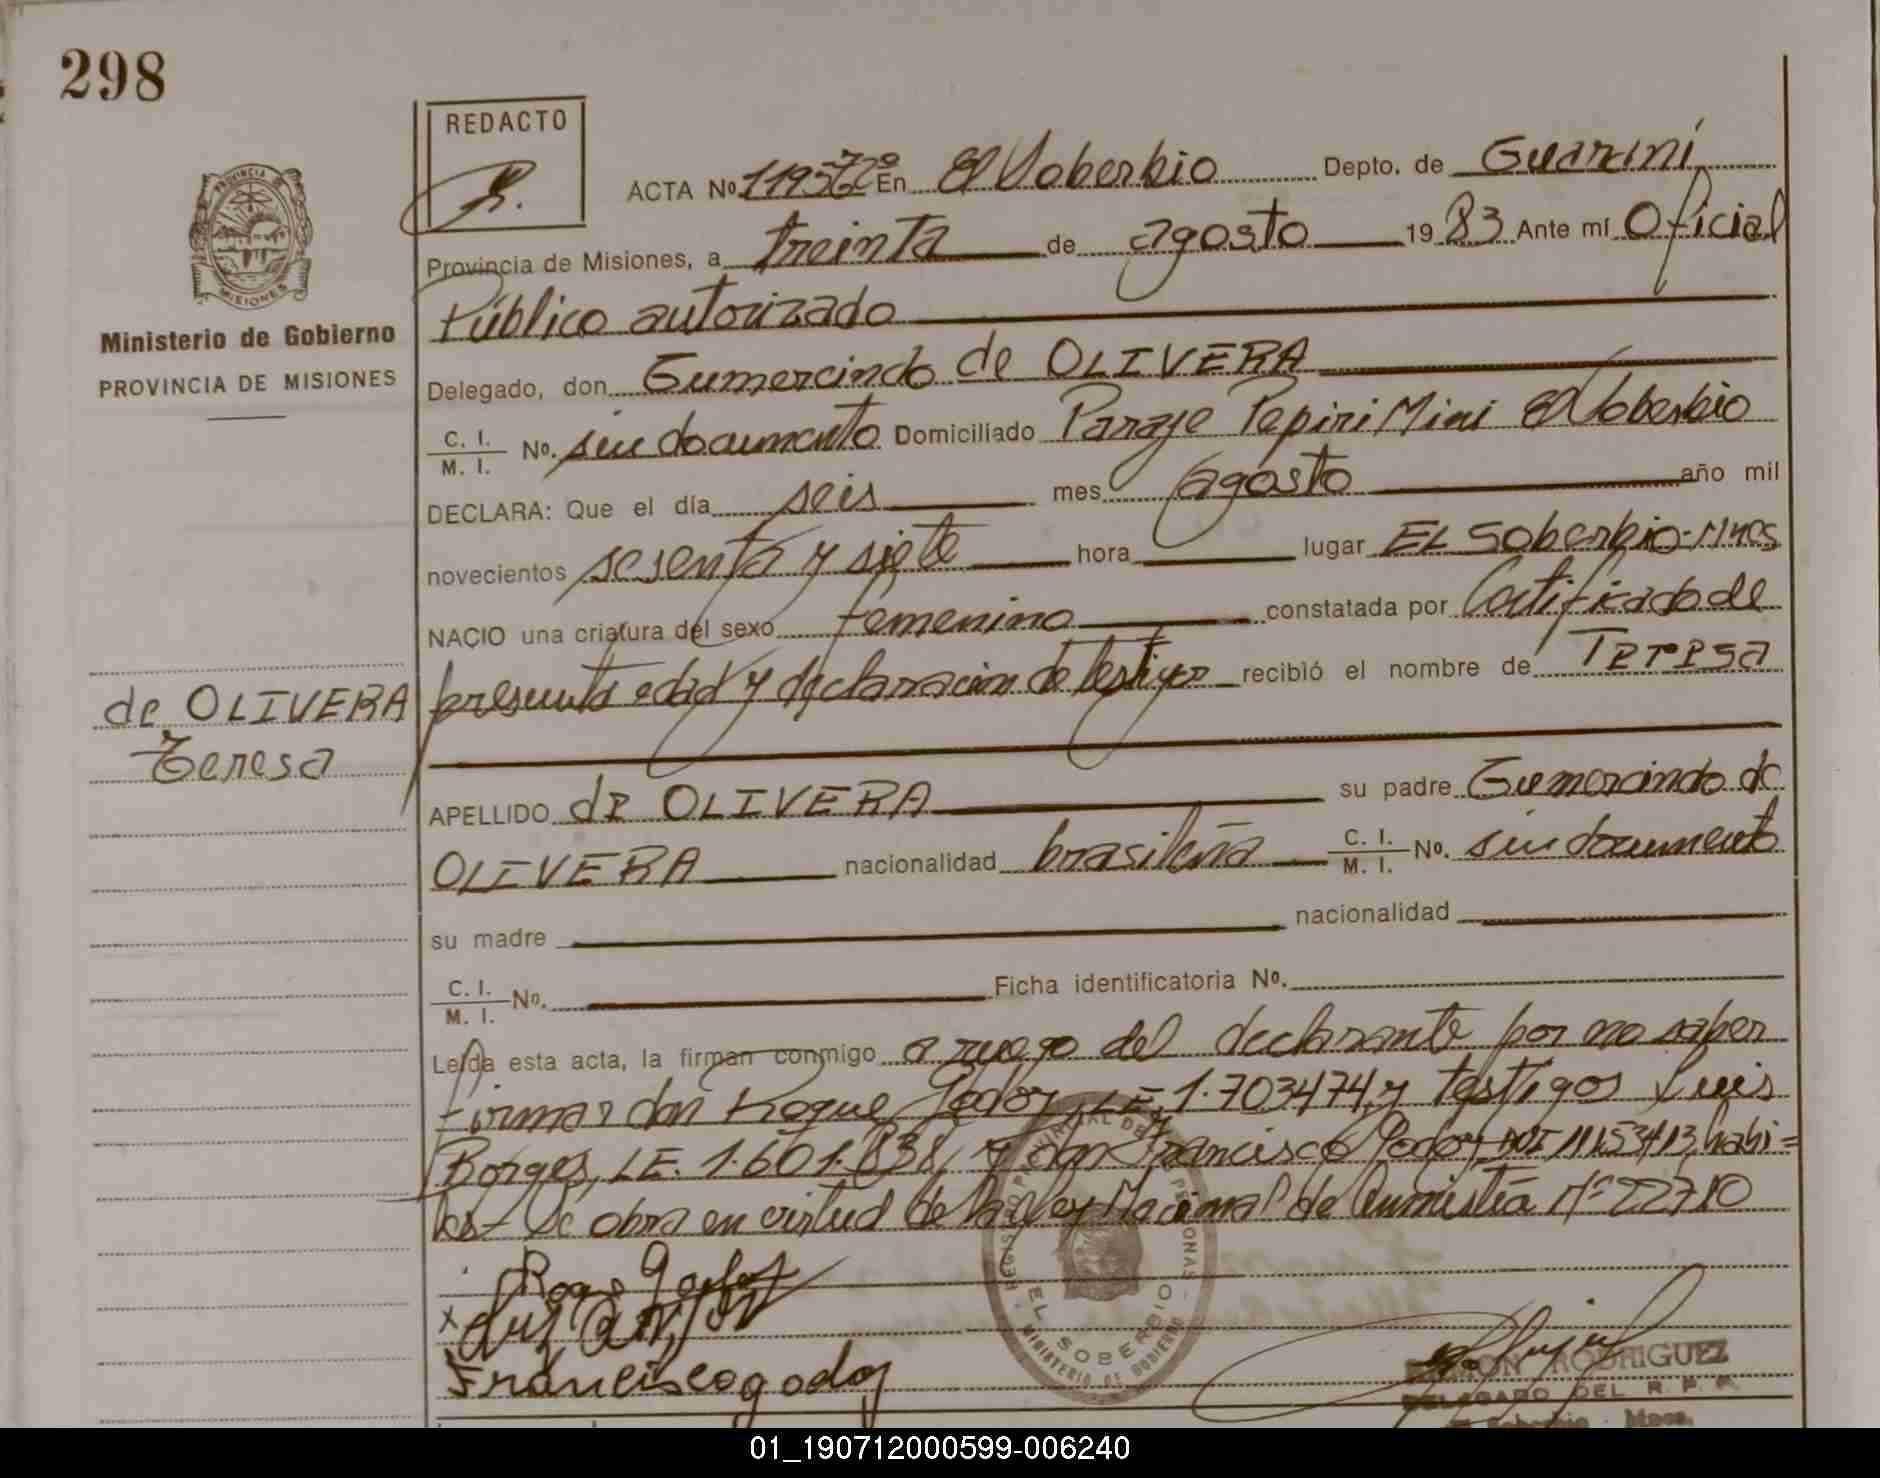 298
REDACTO
ACTA Nº En El Soberbio Depto. de Guaraní
Provincia de Misiones, a treinta de agosto 1983 Ante mí Oficial
Público autorizado
PROVINCIA DE
MISIONES
Ministerio de Gobierno
PROVINCIA DE MISIONES
Delegado, don Gumercindo de OLIVERA
C. I.
M. I. No. sin documento Domiciliado Paraje Pepiri Mini El Soberbio
DECLARA: Que el día seis mes agosto año mil
novecientos sesenta y siete hora lugar EL Soberbio-Mnes
NACIO una criatura del sexo femenino constatada por Certificado de
presunta edad y declaración de testigos recibió el nombre de Teresa
de OLIVERA
Teresa
APELLIDO de OLIVERA su padre Gumercindo de
OLIVERA nacionalidad brasileña C. I.
M. I. No. sin documento
su madre nacionalidad
C. I.
M. I. No. Ficha identificatoria No.
Leída esta acta, la firman conmigo a ruego del declarante por no saber
firmar don Roque Godoy, LE. 1.703474, y testigos Luis
Borges, LE. 1.601.838, y don Francisco Godoy DNI 11153413, habi=
les- Se obra en virtud de la Ley Nacional de Amnistía Nº 22710
REGISTRO PROVINCIAL DE LAS PERSONAS
EL SOBERBIO
MINISTERIO DE GOBIERNO
x
Francisco godoy
RODRIGUEZ
DELEGADO DEL R. P. P.
El Soberbio - Mnes.
01_190712000599-006240